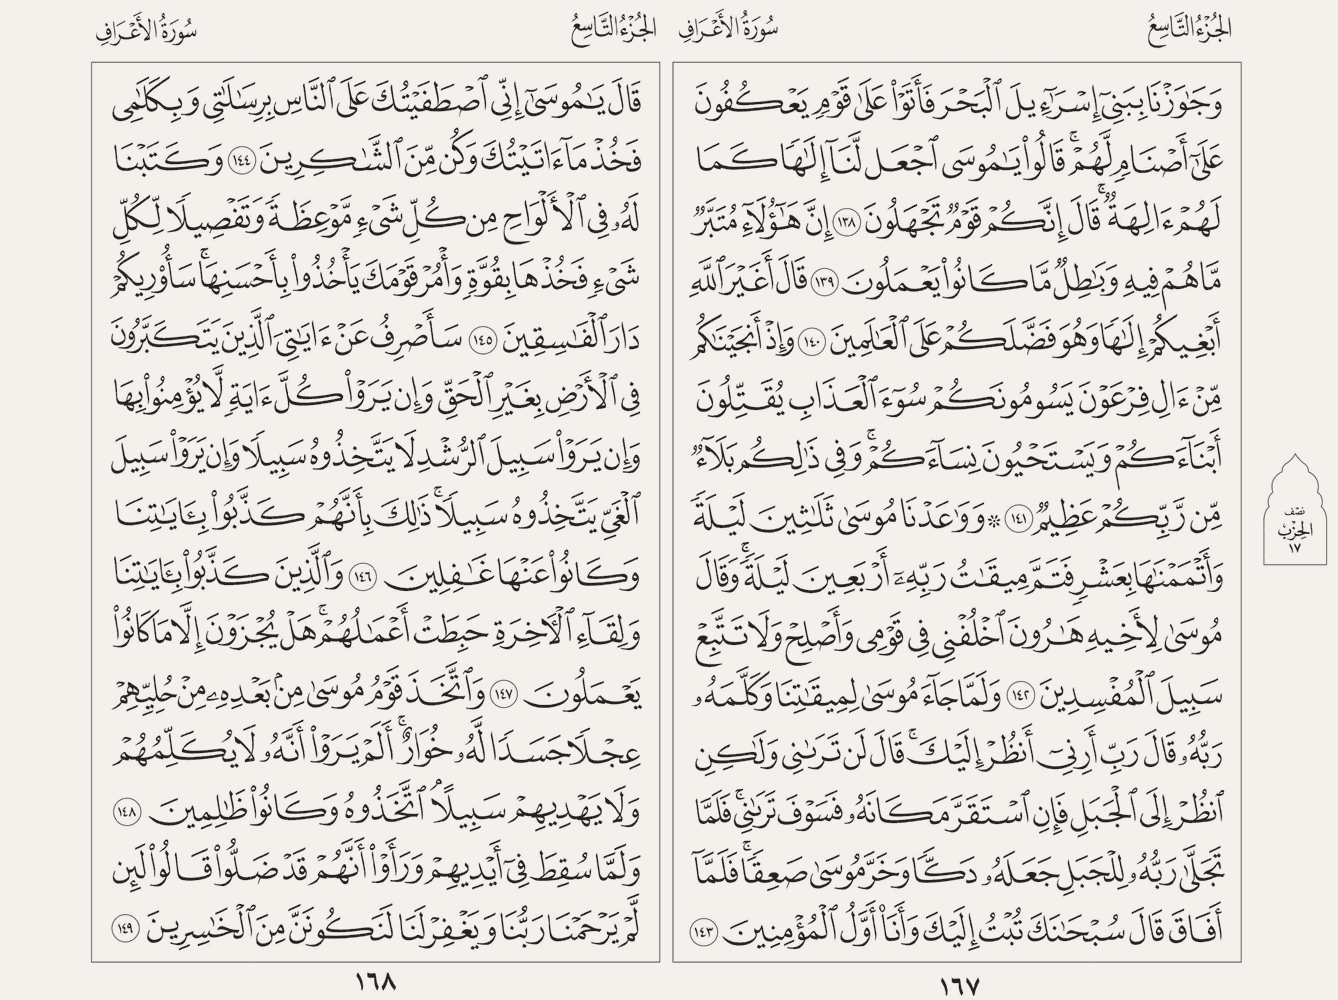 الجُزْءُ التَّاسِعُ
سُورَةُ الأَعْرَافِ
وَجَٰوَزْنَا بِبَنِىٓ إِسْرَٰٓءِيلَ ٱلْبَحْرَ فَأَتَوْا۟ عَلَىٰ قَوْمٍ يَعْكُفُونَ
عَلَىٰٓ أَصْنَامٍ لَّهُمْ ۚ قَالُوا۟ يَٰمُوسَى ٱجْعَل لَّنَآ إِلَٰهًا كَمَا
لَهُمْ ءَالِهَةٌ ۚ قَالَ إِنَّكُمْ قَوْمٌ تَجْهَلُونَ ١٣٨ إِنَّ هَٰٓؤُلَآءِ مُتَبَّرٌ
مَّا هُمْ فِيهِ وَبَٰطِلٌ مَّا كَانُوا۟ يَعْمَلُونَ ١٣٩ قَالَ أَغَيْرَ ٱللَّهِ
أَبْغِيكُمْ إِلَٰهًا وَهُوَ فَضَّلَكُمْ عَلَى ٱلْعَٰلَمِينَ ١٤٠ وَإِذْ أَنجَيْنَٰكُم
مِّنْ ءَالِ فِرْعَوْنَ يَسُومُونَكُمْ سُوٓءَ ٱلْعَذَابِ يُقَتِّلُونَ
أَبْنَآءَكُمْ وَيَسْتَحْيُونَ نِسَآءَكُمْ ۚ وَفِى ذَٰلِكُم بَلَآءٌ
مِّن رَّبِّكُمْ عَظِيمٌ ١٤١ ۞ وَوَٰعَدْنَا مُوسَىٰ ثَلَٰثِينَ لَيْلَةً
وَأَتْمَمْنَٰهَا بِعَشْرٍ فَتَمَّ مِيقَٰتُ رَبِّهِۦٓ أَرْبَعِينَ لَيْلَةً ۚ وَقَالَ
مُوسَىٰ لِأَخِيهِ هَٰرُونَ ٱخْلُفْنِى فِى قَوْمِى وَأَصْلِحْ وَلَا تَتَّبِعْ
سَبِيلَ ٱلْمُفْسِدِينَ ١٤٢ وَلَمَّا جَآءَ مُوسَىٰ لِمِيقَٰتِنَا وَكَلَّمَهُۥ
رَبُّهُۥ قَالَ رَبِّ أَرِنِىٓ أَنظُرْ إِلَيْكَ ۚ قَالَ لَن تَرَىٰنِى وَلَٰكِنِ
ٱنظُرْ إِلَى ٱلْجَبَلِ فَإِنِ ٱسْتَقَرَّ مَكَانَهُۥ فَسَوْفَ تَرَىٰنِى ۚ فَلَمَّا
تَجَلَّىٰ رَبُّهُۥ لِلْجَبَلِ جَعَلَهُۥ دَكًّا وَخَرَّ مُوسَىٰ صَعِقًا ۚ فَلَمَّآ
أَفَاقَ قَالَ سُبْحَٰنَكَ تُبْتُ إِلَيْكَ وَأَنَا۠ أَوَّلُ ٱلْمُؤْمِنِينَ ١٤٣
١٦٧
نِصْف
الحِزْب
١٧
الجُزْءُ التَّاسِعُ
سُورَةُ الأَعْرَافِ
قَالَ يَٰمُوسَىٰٓ إِنِّى ٱصْطَفَيْتُكَ عَلَى ٱلنَّاسِ بِرِسَٰلَٰتِى وَبِكَلَٰمِى
فَخُذْ مَآ ءَاتَيْتُكَ وَكُن مِّنَ ٱلشَّٰكِرِينَ ١٤٤ وَكَتَبْنَا
لَهُۥ فِى ٱلْأَلْوَاحِ مِن كُلِّ شَىْءٍ مَّوْعِظَةً وَتَفْصِيلًا لِّكُلِّ
شَىْءٍ فَخُذْهَا بِقُوَّةٍ وَأْمُرْ قَوْمَكَ يَأْخُذُوا۟ بِأَحْسَنِهَا ۚ سَأُو۟رِيكُمْ
دَارَ ٱلْفَٰسِقِينَ ١٤٥ سَأَصْرِفُ عَنْ ءَايَٰتِىَ ٱلَّذِينَ يَتَكَبَّرُونَ
فِى ٱلْأَرْضِ بِغَيْرِ ٱلْحَقِّ وَإِن يَرَوْا۟ كُلَّ ءَايَةٍ لَّا يُؤْمِنُوا۟ بِهَا
وَإِن يَرَوْا۟ سَبِيلَ ٱلرُّشْدِ لَا يَتَّخِذُوهُ سَبِيلًا وَإِن يَرَوْا۟ سَبِيلَ
ٱلْغَىِّ يَتَّخِذُوهُ سَبِيلًا ۚ ذَٰلِكَ بِأَنَّهُمْ كَذَّبُوا۟ بِـَٔايَٰتِنَا
وَكَانُوا۟ عَنْهَا غَٰفِلِينَ ١٤٦ وَٱلَّذِينَ كَذَّبُوا۟ بِـَٔايَٰتِنَا
وَلِقَآءِ ٱلْـَٔاخِرَةِ حَبِطَتْ أَعْمَٰلُهُمْ ۚ هَلْ يُجْزَوْنَ إِلَّا مَا كَانُوا۟
يَعْمَلُونَ ١٤٧ وَٱتَّخَذَ قَوْمُ مُوسَىٰ مِنۢ بَعْدِهِۦ مِنْ حُلِيِّهِمْ
عِجْلًا جَسَدًا لَّهُۥ خُوَارٌ ۚ أَلَمْ يَرَوْا۟ أَنَّهُۥ لَا يُكَلِّمُهُمْ
وَلَا يَهْدِيهِمْ سَبِيلًا ۘ ٱتَّخَذُوهُ وَكَانُوا۟ ظَٰلِمِينَ ١٤٨
وَلَمَّا سُقِطَ فِىٓ أَيْدِيهِمْ وَرَأَوْا۟ أَنَّهُمْ قَدْ ضَلُّوا۟ قَالُوا۟ لَئِن
لَّمْ يَرْحَمْنَا رَبُّنَا وَيَغْفِرْ لَنَا لَنَكُونَنَّ مِنَ ٱلْخَٰسِرِينَ ١٤٩
١٦٨